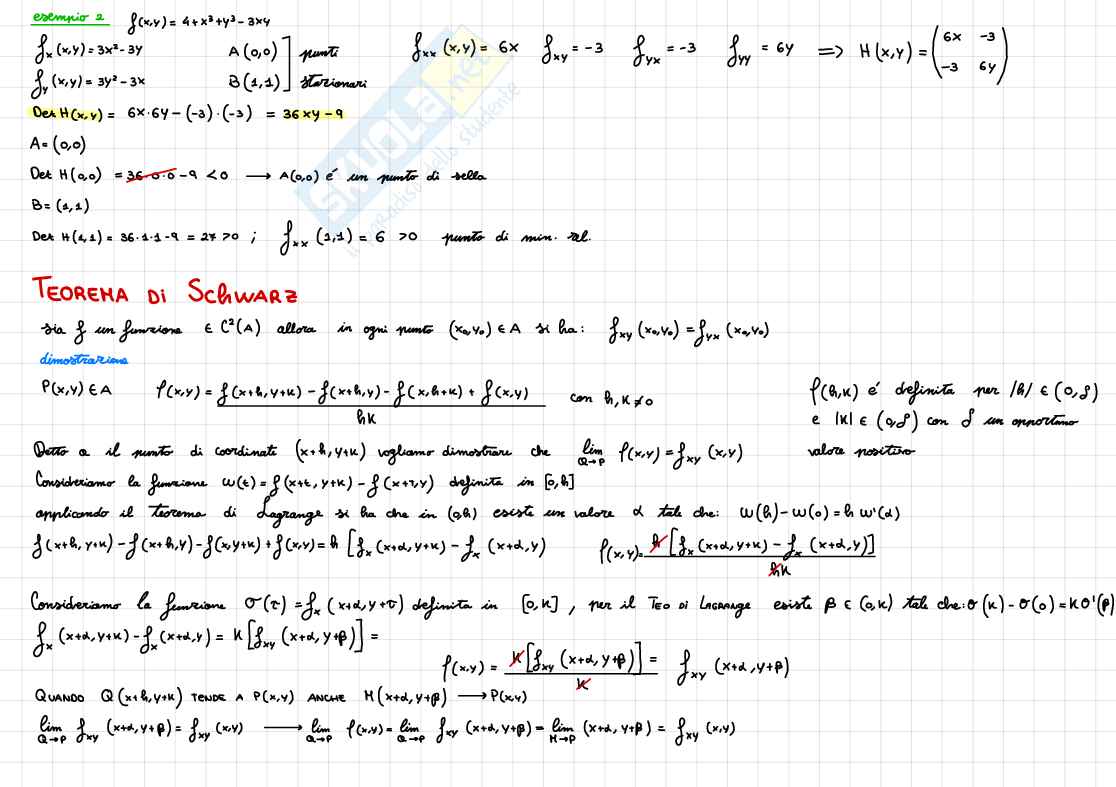 esempio 2 f(x,y) = 4+x³+y³-3xy
fx (x,y) = 3x²-3y A(0,0) punti
fy (x,y) = 3y²-3x B(1,1) stazionari
fxx (x,y) = 6x fxy = -3 fyx = -3 fyy = 6y => H(x,y) = (6x -3
-3 6y)
Det H(x,y) = 6x·6y-(-3)·(-3) = 36xy-9
A=(0,0)
Det H(0,0) = 36·0·0-9 <0 → A(0,0) é un punto di sella
B=(1,1)
Det H(1,1) = 36·1·1-9 = 27>0 ; fxx (1,1) = 6 >0 punto di min. rel.
TEOREMA DI SCHWARZ
sia f un funzione ∈ C²(A) allora in ogni punto (x₀,y₀) ∈ A si ha: fxy (x₀,y₀) = fyx (x₀,y₀)
dimostrazione
P(x,y) ∈ A f(x,y) = f(x+h,y+k) - f(x+h,y) - f(x,h+k) + f(x,y) con h,k≠0
hk
f(h,k) é definita per |h| ∈ (0,δ)
e |k| ∈ (0,δ) con δ un opportuno
valore positivo
Detto Q il punto di coordinate (x+h,y+k) vogliamo dimostrare che lim Q→P f(x,y) = fxy (x,y)
Consideriamo la funzione w(t) = f(x+t,y+k) - f(x+τ,y) definita in [0,h]
applicando il teorema di Lagrange si ha che in (0,h) esiste un valore α tale che: w(h)-w(0) = h w'(α)
f(x+h,y+k) - f(x+h,y) - f(x,y+k) + f(x,y) = h [fx (x+α,y+k) - fx (x+α,y) f(x,y) = h [fx (x+α,y+k) - fx (x+α,y)]
hk
Consideriamo la funzione σ(τ) = fx (x+α,y+τ) definita in [0,k] , per il TEO DI LAGRANGE esiste β ∈ (0,k) tale che: σ(k) - σ(0) = kσ'(β)
fx (x+α,y+k) - fx (x+α,y) = k [fxy (x+α,y+β)] =
f(x,y) = k [fxy (x+α,y+β)] = fxy (x+α,y+β)
k
QUANDO Q(x+h,y+k) TENDE A P(x,y) ANCHE M(x+α,y+β) → P(x,y)
lim Q→P fxy (x+α,y+β) = fxy (x,y) → lim Q→P f(x,y) = lim Q→P fxy (x+α,y+β) = lim M→P (x+α,y+β) = fxy (x,y)